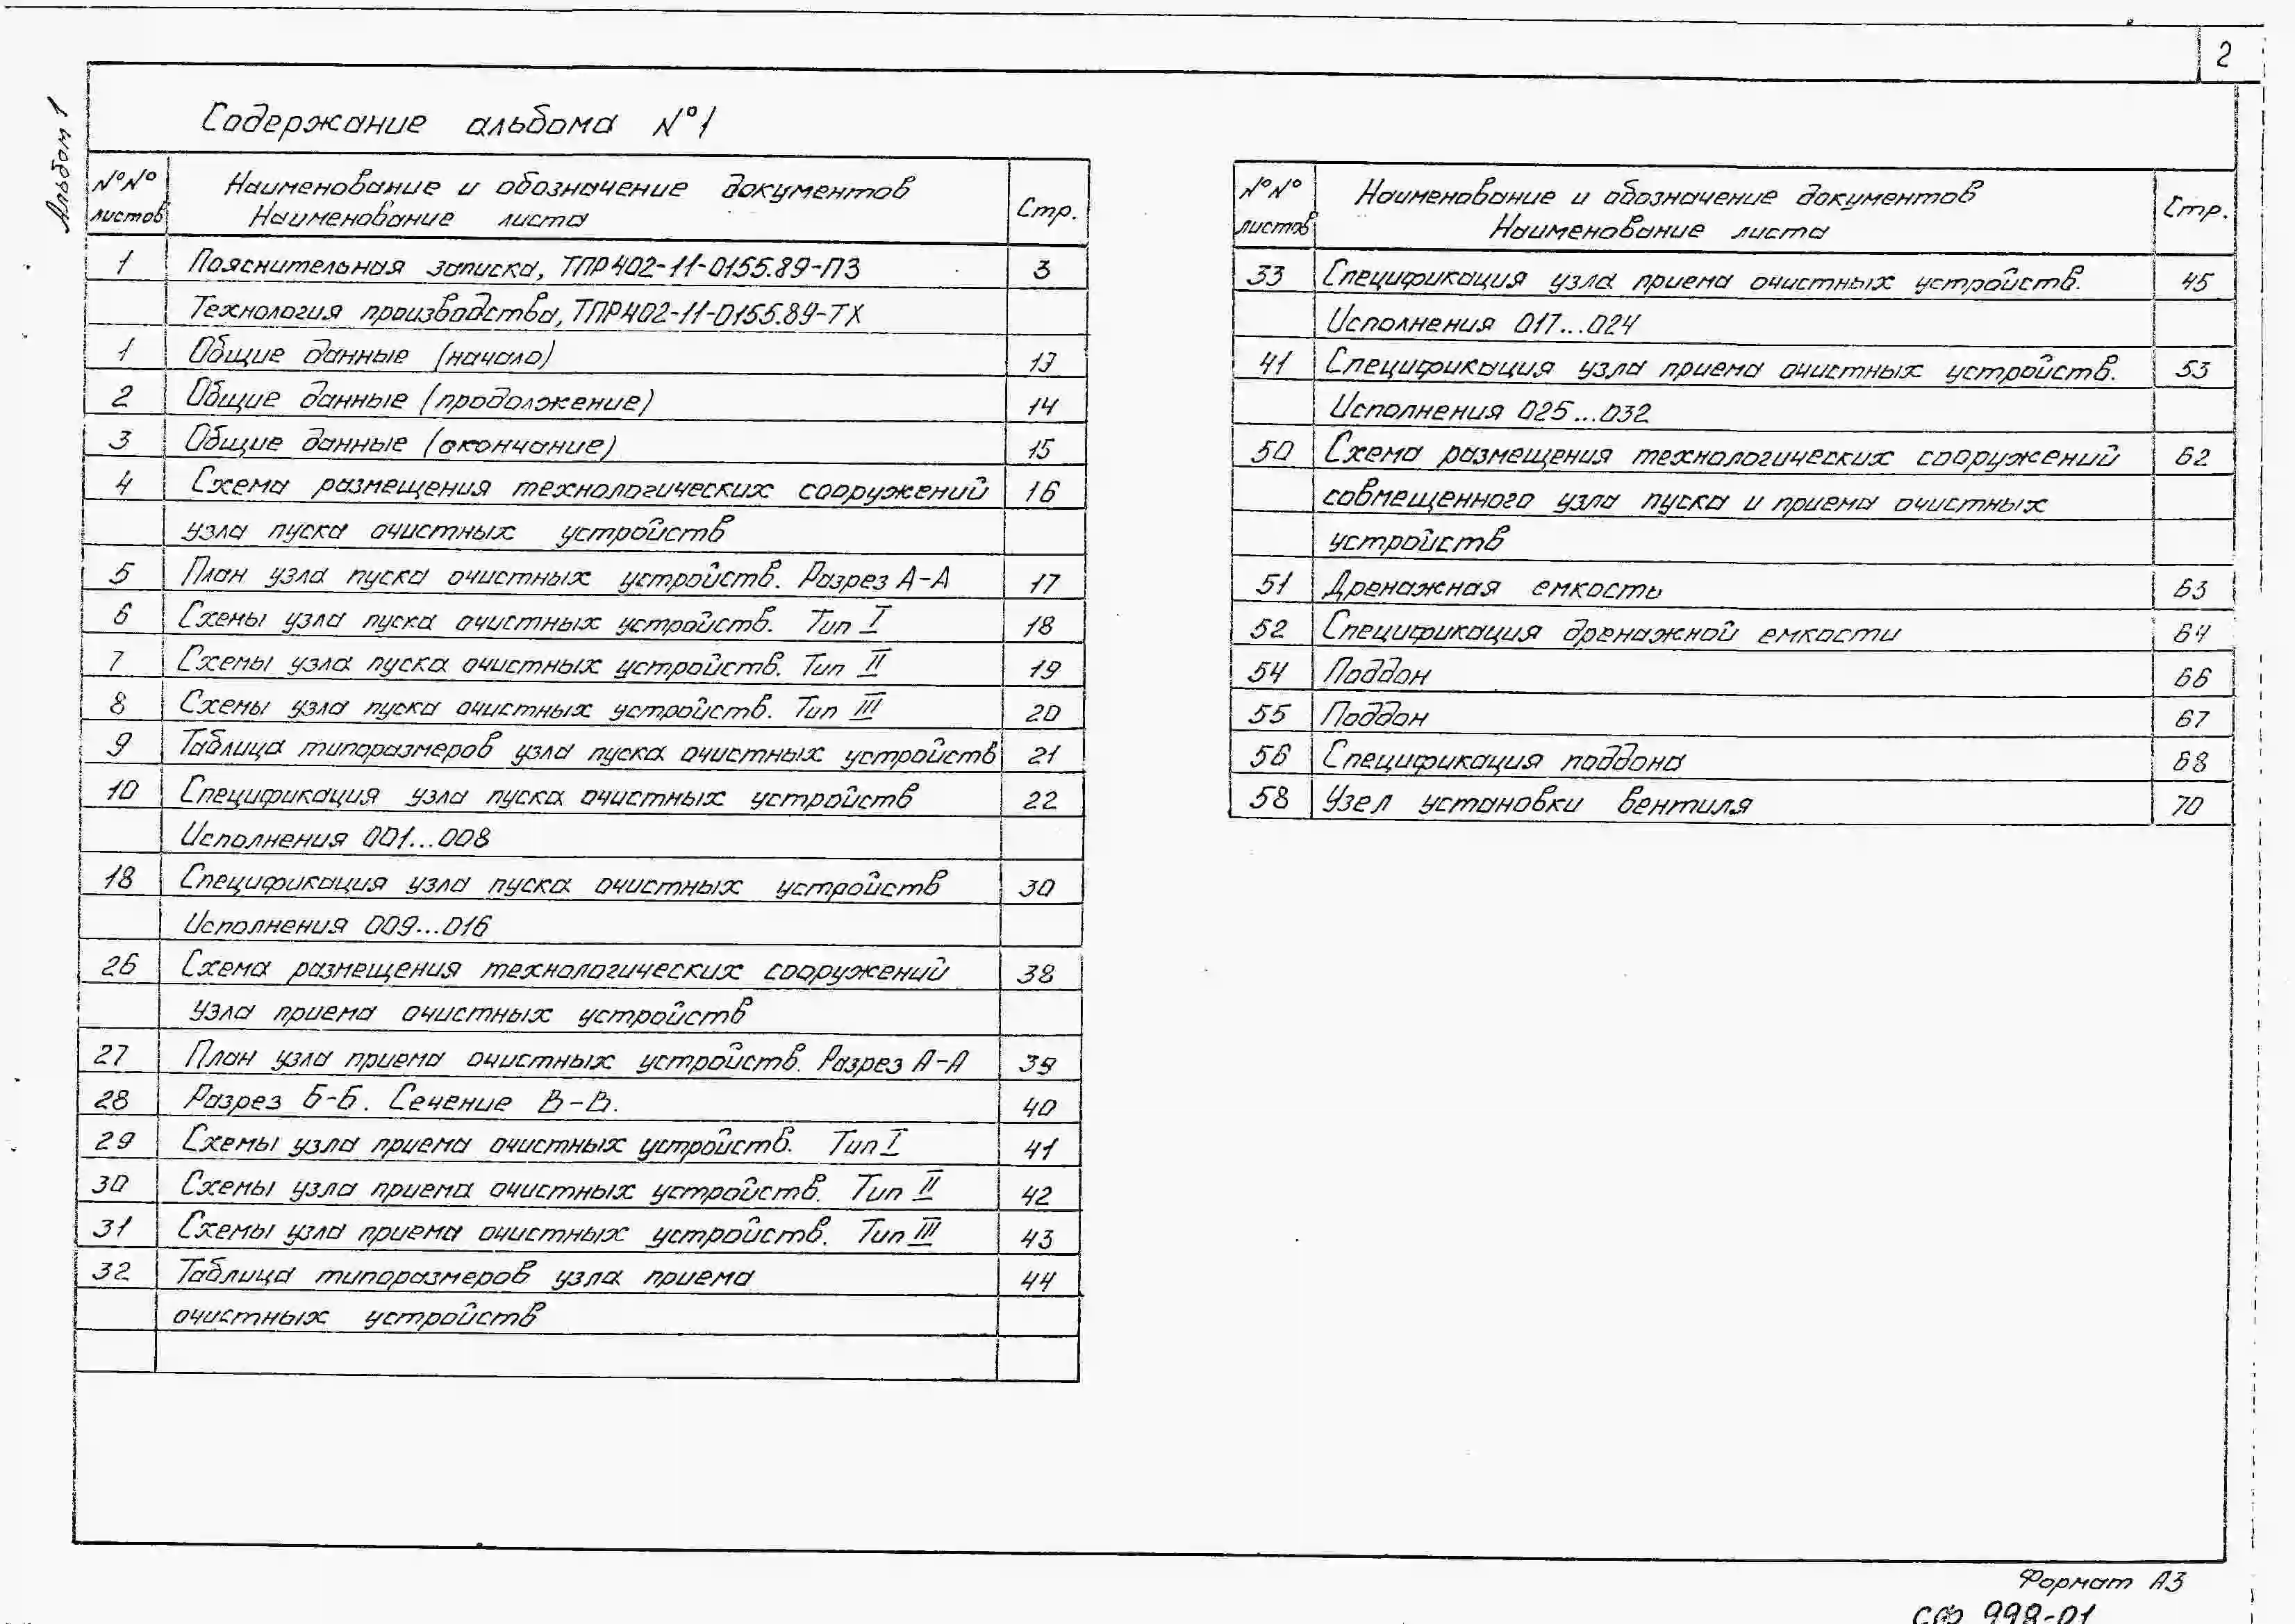 2
Альбом 1
Содержание альбома №1
№№ листов
Наименование и обозначение документов
Наименование листа
Стр.
1 Пояснительная записка, ТПР402-11-0155.89-ПЗ 3
Технология производства, ТПР402-11-0155.89-ТХ
1 Общие данные (начало) 13
2 Общие данные (продолжение) 14
3 Общие данные (окончание) 15
4 Схема размещения технологических сооружений 16
узла пуска очистных устройств
5 План узла пуска очистных устройств. Разрез А-А 17
6 Схемы узла пуска очистных устройств. Тип I 18
7 Схемы узла пуска очистных устройств. Тип II 19
8 Схемы узла пуска очистных устройств. Тип III 20
9 Таблица типоразмеров узла пуска очистных устройств 21
10 Спецификация узла пуска очистных устройств 22
Исполнения 001...008
18 Спецификация узла пуска очистных устройств 30
Исполнения 009...016
26 Схема размещения технологических сооружений 38
узла приема очистных устройств
27 План узла приема очистных устройств. Разрез А-А 39
28 Разрез Б-Б. Сечение В-В. 40
29 Схемы узла приема очистных устройств. Тип I 41
30 Схемы узла приема очистных устройств. Тип II 42
31 Схемы узла приема очистных устройств. Тип III 43
32 Таблица типоразмеров узла приема 44
очистных устройств
№№ листов
Наименование и обозначение документов
Наименование листа
Стр.
33 Спецификация узла приема очистных устройств. 45
Исполнения 017...024
41 Спецификация узла приема очистных устройств. 53
Исполнения 025...032
50 Схема размещения технологических сооружений 62
совмещенного узла пуска и приема очистных
устройств
51 Дренажная емкость 63
52 Спецификация дренажной емкости 64
54 Поддон 66
55 Поддон 67
56 Спецификация поддона 68
58 Узел установки вентиля 70
Формат А3
СФ 998-01